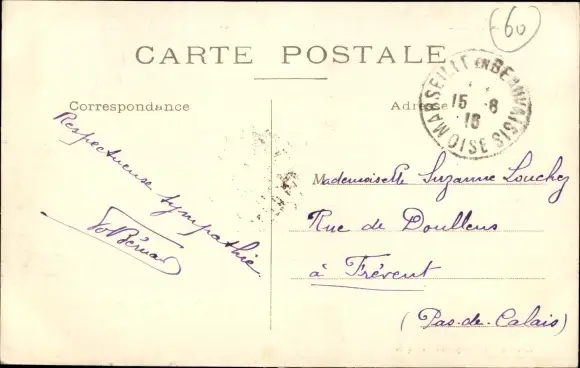 60
CARTE POSTALE
MARSEILLE EN BEAUVAISIS
15 -8
16
OISE
Correspondance
Adresse
Respectueuse sympathie.
Mademoiselle Suzanne Louchez
Rue de Doullens
à Frévent
(Pas-de-Calais)